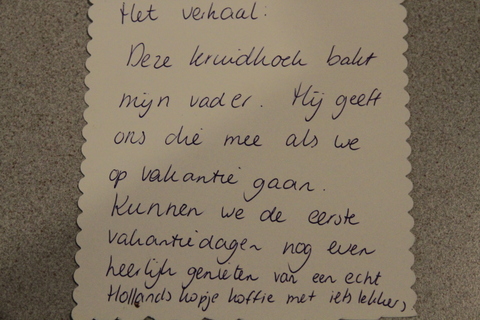 Het verhaal:
Deze kruidkoek bakt
mijn vader. Hij geeft
ons die mee als we
op vakantie gaan.
Kunnen we de eerste
vakantiedagen nog even
heerlijk genieten van een echt
Hollands kopje koffie met iets lekkers